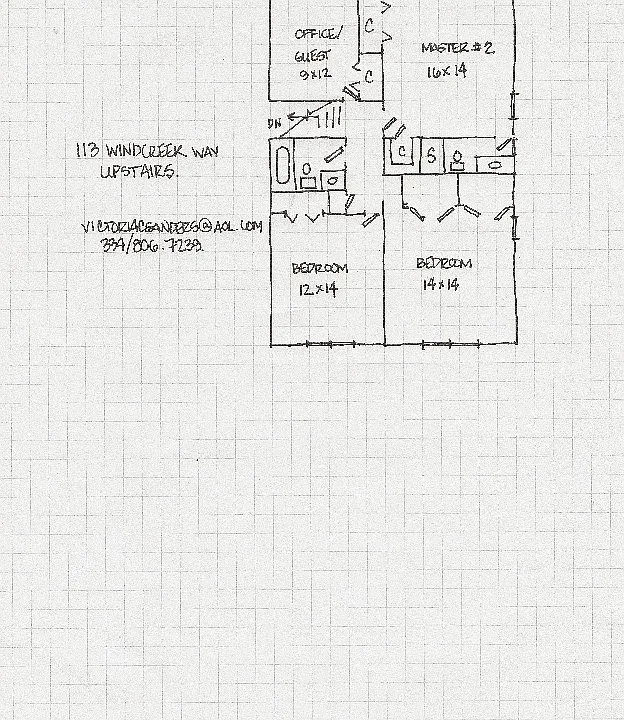 OFFICE/
GUEST
9x12
C
C
MASTER #2
16x14
DN
C
S
113 WINDCREEK WAY
UPSTAIRS.
VICTORIACSANDERS@AOL.COM
334/806.7238
BEDROOM
12x14
BEDROOM
14x14